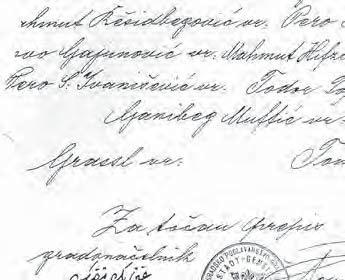 hmut Rešidbegović vr. Pero
vo Gajunović vr. Mahmut Hifzi
Pero S. Ivanišević vr. Todor
Ganibeg Muftić vr.
Grassl vr. Tom
Za točan prepis
gradonačelnik
GRADSKO POGLAVARSTVO
STADT-GEME